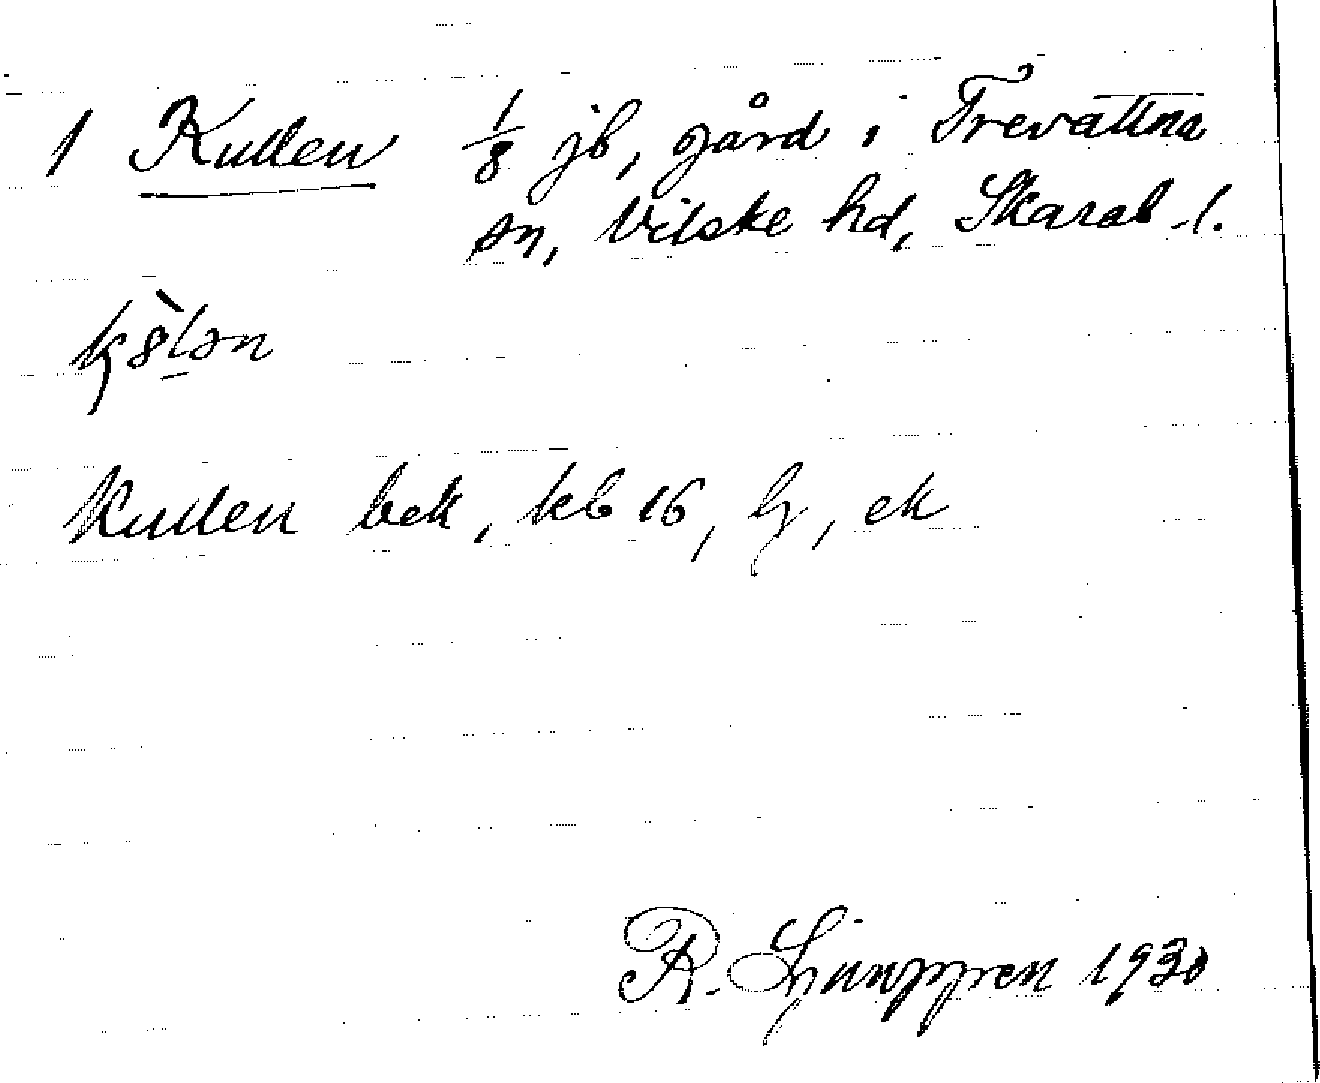 1 Kullen 1/8 jb, gård i Trevattna
sn, Vilske hd, Skarab. l.
Kullen bek, kb 16, lj, ek
R. Ljunggren 1930